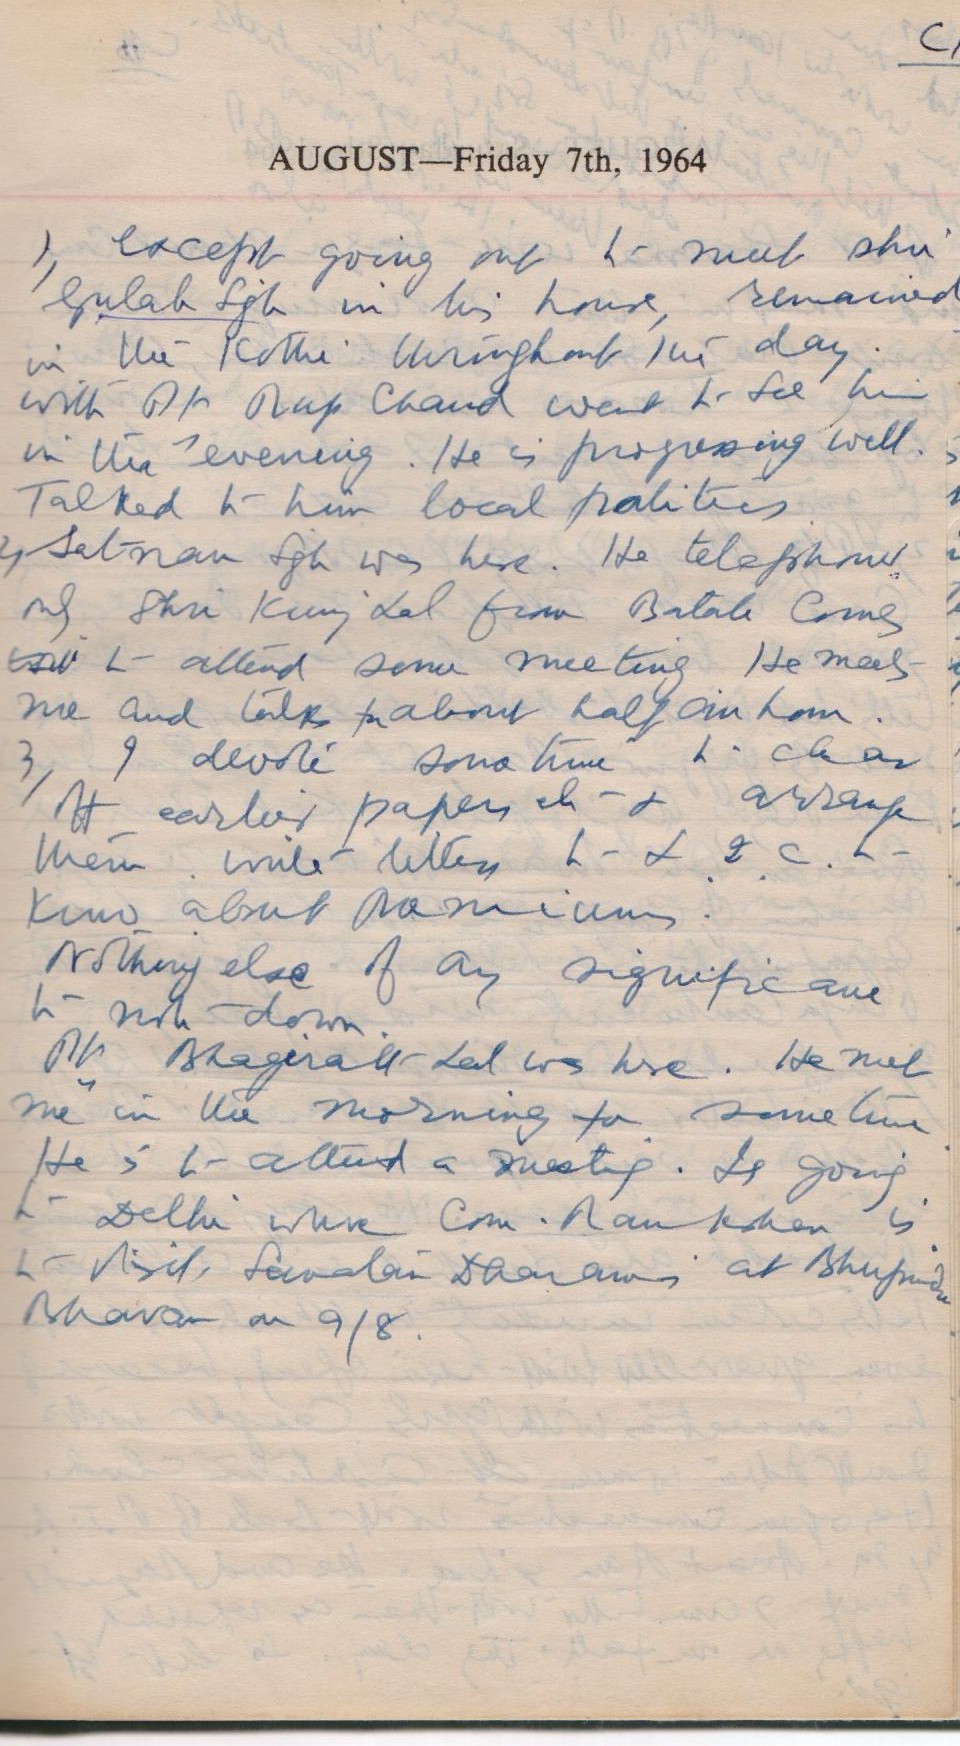 AUGUST—Friday 7th, 1964
1, except going out to meet shri
Gulab Sgh in his house, remained
in the Kothi throughout the day.
with Pt Rup Chand went to see him
in the evening. He is progressing well.
Talked to him local politics
2, Satnam Sgh was here. He telephones
Shri Kunj Lal from Batala Comes
to attend some meeting He meets
me and talks for about half an hour.
3, I devote sometime to clear
earlier papers etc & arrange
them. write letters to
about
Nothing else of any significance
to note down.
Pt Bhagirath Lal was here. He met
me in the morning for sometime
He is to attend a meeting. Is going
to Delhi where Com. Ram Kishan is
to visit Sanatan Dharam at Bhupindra
Bhavan on 9/8.